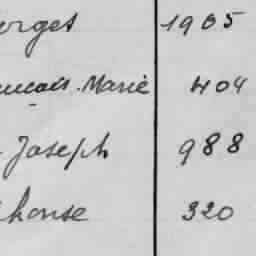 orget 1905
ançois-Marie 404
- Joseph 988
lhonse 320